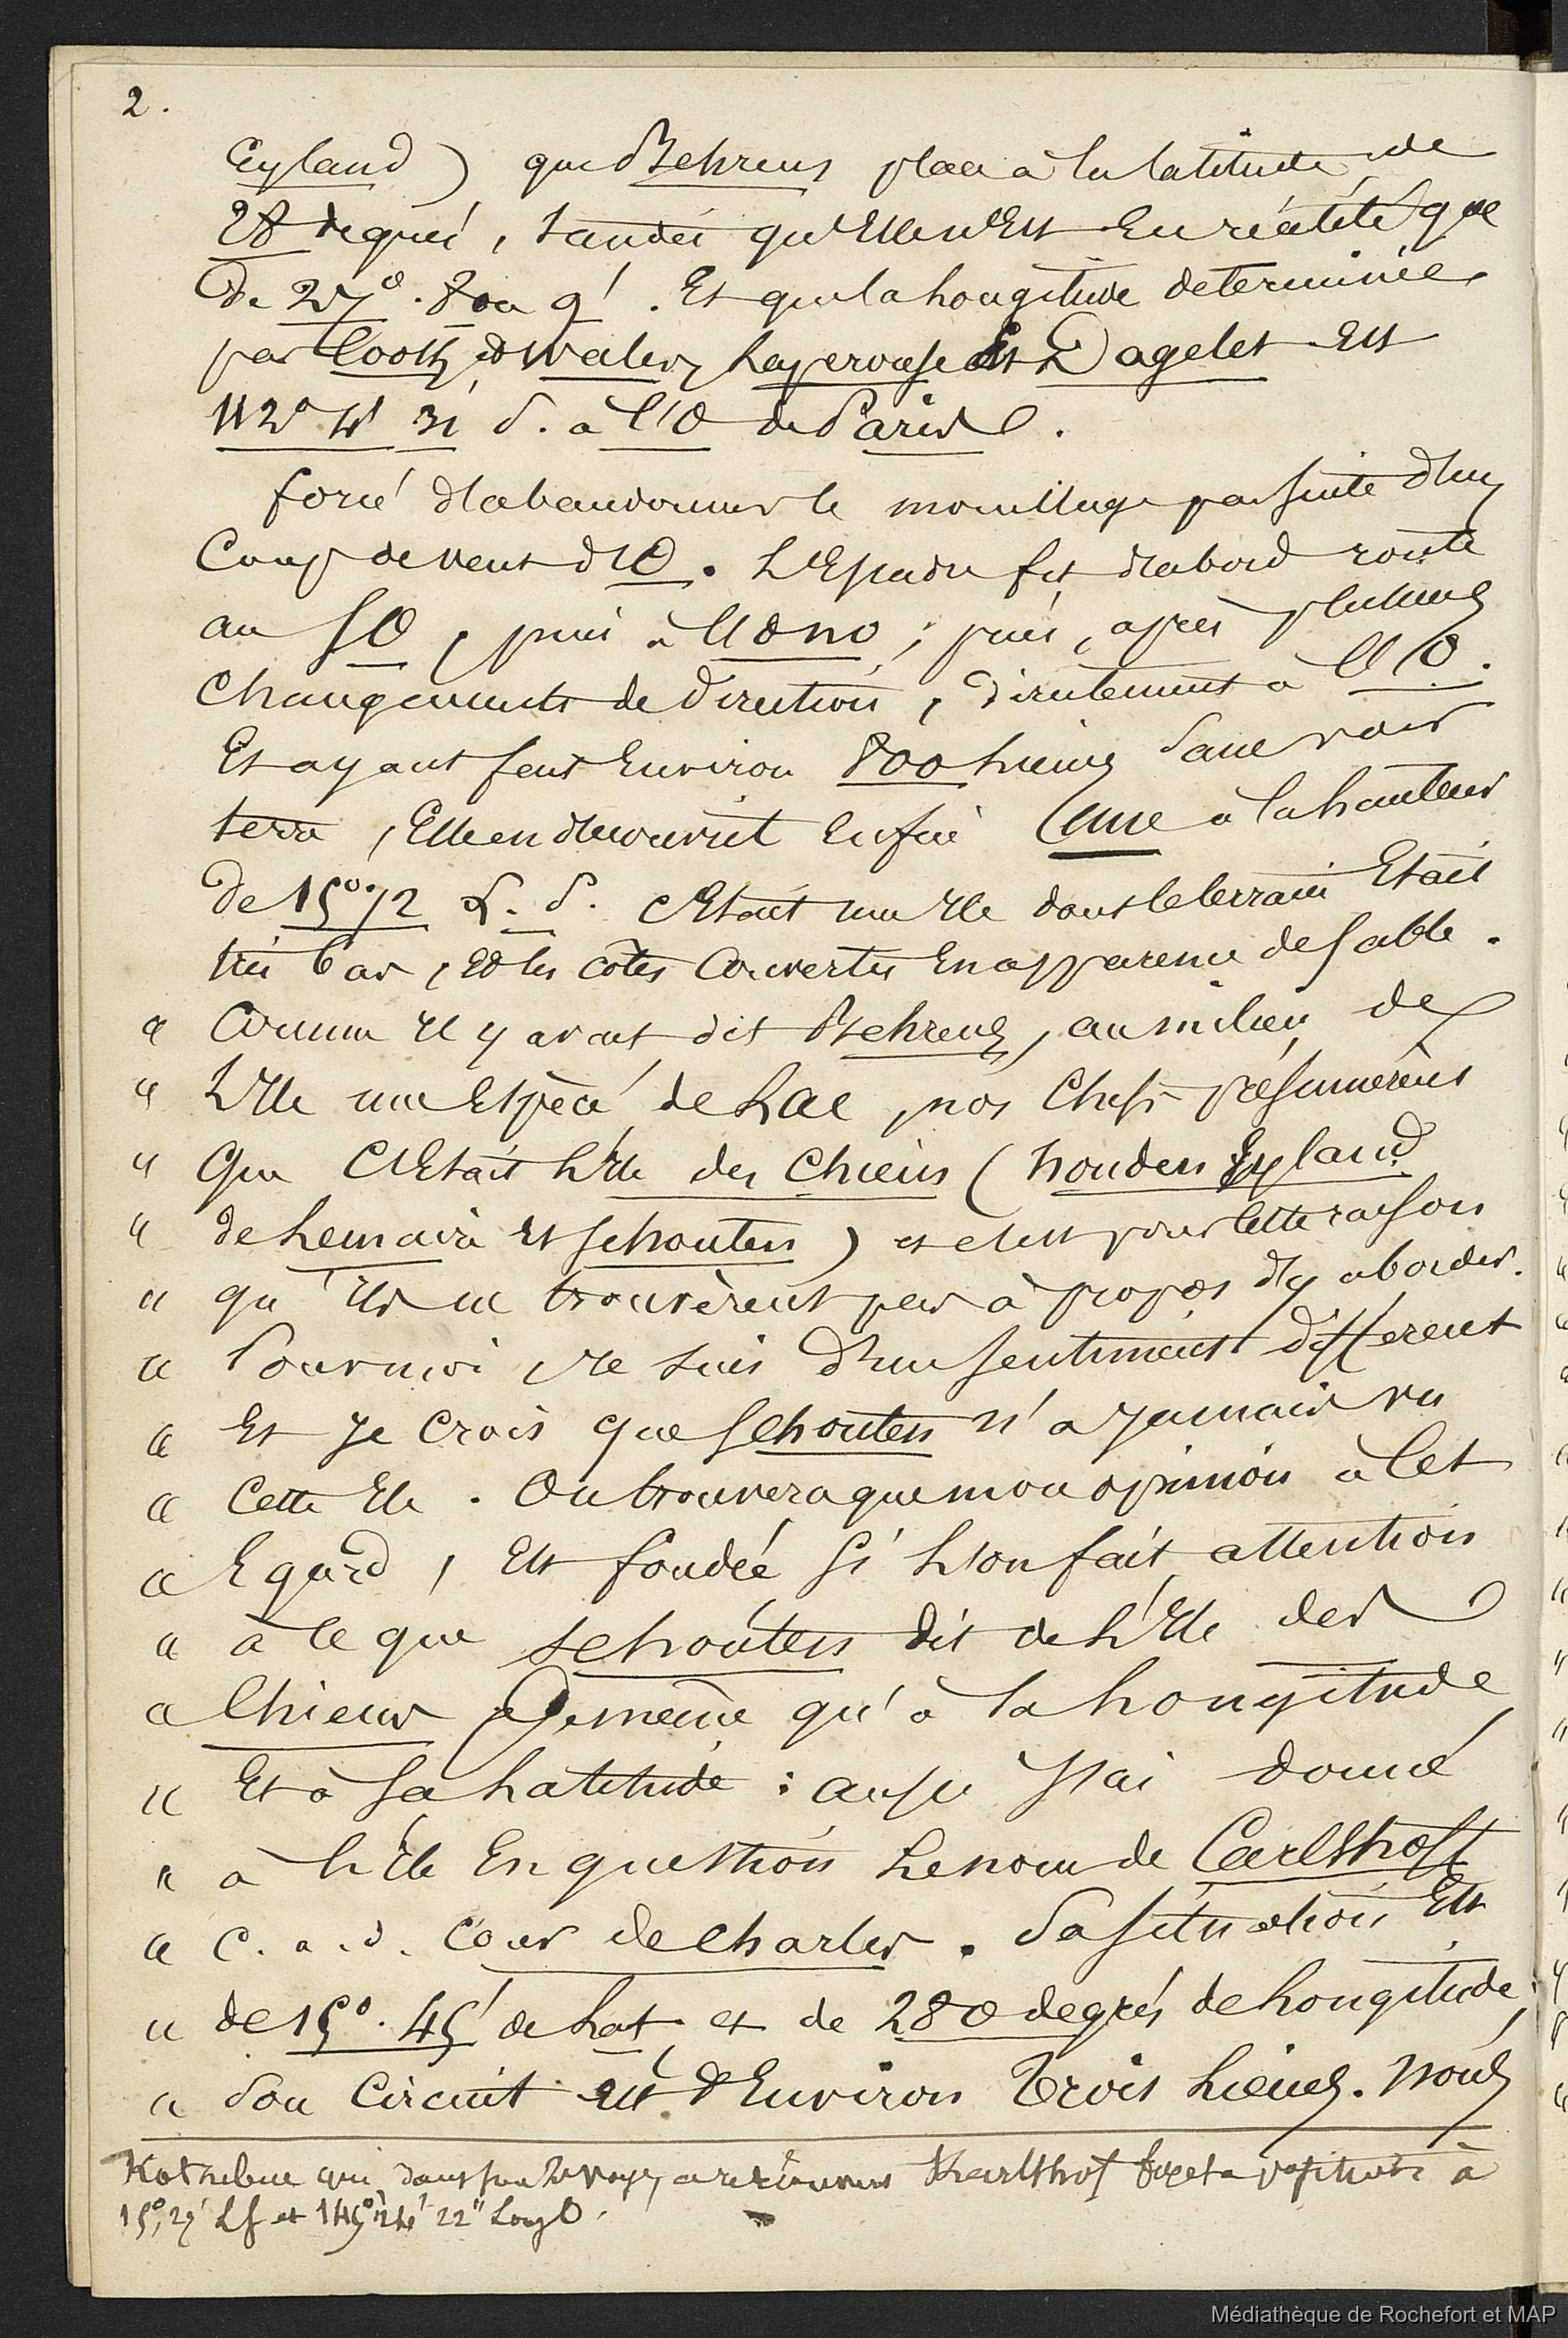 2.
Eyland) que Behrens place à la latitude de
28 degrés, tandis qu'Elle n'Est En réalité que
De 27°. 8 ou 9'. Et que la Longitude determinée
par Cook, et Wales, Laperouse Et Dagelet Est
112° 11' 31 S. à l'O de Paris.
forcé d'abandonner le mouillage par suite d'un
Coup de vent d'O. L'Escadre fit d'abord route
au SO, puis à l'ONO; puis, après plusieurs
Changements de Direction, Directement à l'O.
Et ayant fait Environ 800 Lieues Sans voir
terre, Elle en decouvrit Enfin Une à la hauteur
De 15° 1/2 L. S. C'Etait une Ile dont le terrain Etait
très bas, et les côtes Couvertes En apparence de sable.
" Comme Il y avait dit Behrens, au milieu de
" L'Ile une Espèce de Lac, nos Chefs présumèrent
" Que C'Etait L'Ile des Chiens (Honden Eyland
" de Lemaire Et Schouten) et c'est pour Cette raison
" qu'Ils ne trouvèrent pas à propos d'y aborder.
" Pour moi Je suis D'un sentiment différent
" Et Je Crois que Schouten n'a Jamais vu
" Cette Ile. On trouvera que mon opinion à Cet
" Egard, Est fondée Si L'on fait attention
" à Ce que Schouten dit de L'Ile des
" Chiens De même qu'à la Longitude
" Et à sa Latitude: aussi J'ai donné
" à L'Ile En question Le nom de Carlshoff
" C. a. d. Cour de Charles. Sa situation Est
" de 15°. 45' de Lat et de 280 degrés de Longitude;
" Son Circuit Est d'Environ Trois Lieues. Nous
Kotzebue qui dans son voyage a retrouvé Karlshof fixe la position à
15°, 27' LS et 145° 24' 22" Long O.
Médiathèque de Rochefort et MAP